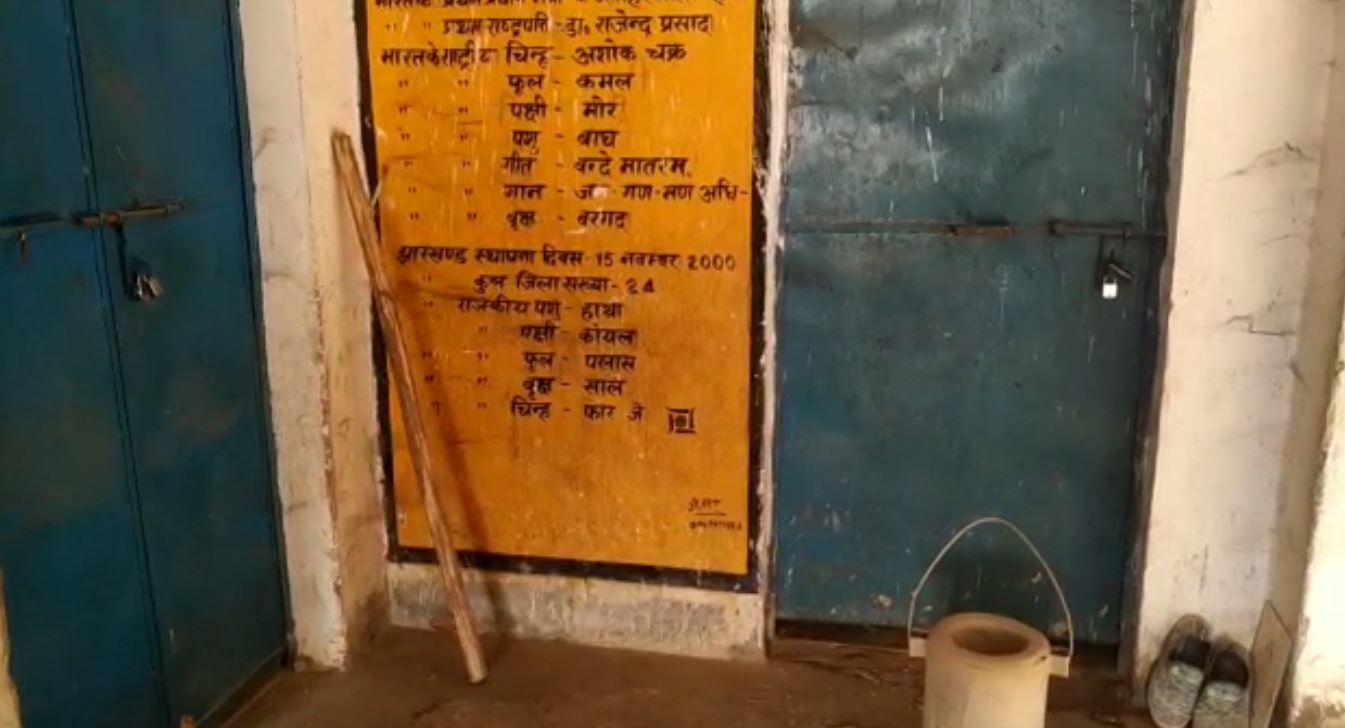 भारत के प्रथम प्रधान मंत्री
" " प्रथम राष्ट्रपति - डा० राजेन्द्र प्रसाद
भारत के राष्ट्रीय चिन्ह - अशोक चक्र
" " फूल - कमल
" " पक्षी - मोर
" " पशु - बाघ
" " गीत - वन्दे मातरम्
" " गान - जन गण-मण अधि-
" " वृक्ष - बरगद
झारखण्ड स्थापना दिवस - 15 नवम्बर 2000
" कुल जिला संख्या - 24
" राजकीय पशु - हाथी
" पक्षी - कोयल
" " फूल - पलास
" " वृक्ष - साल
" " चिन्ह - फार जे